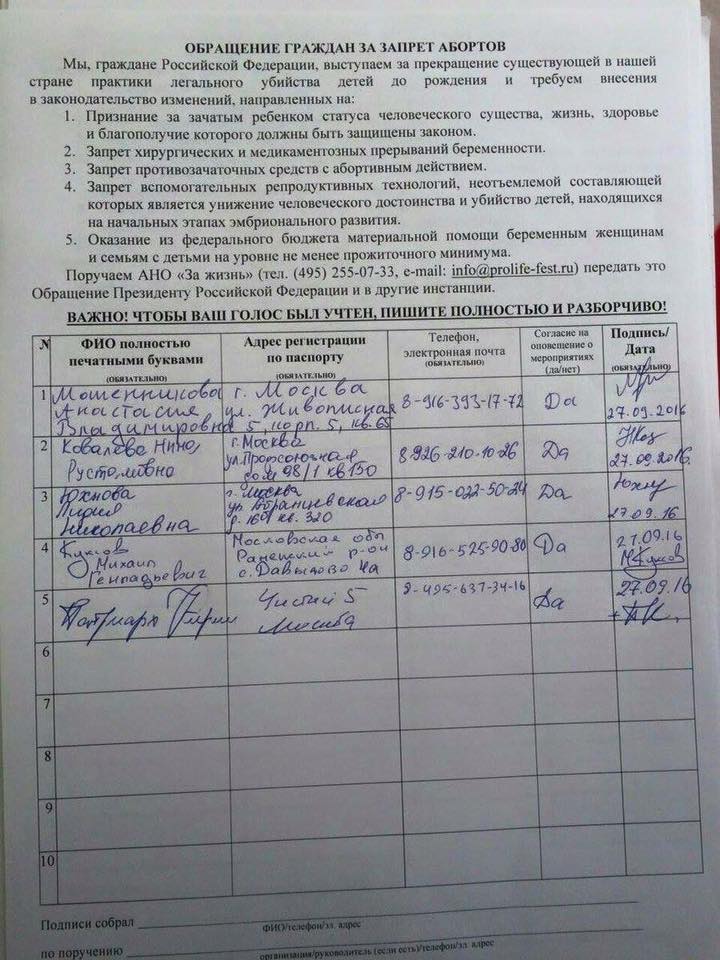 ОБРАЩЕНИЕ ГРАЖДАН ЗА ЗАПРЕТ АБОРТОВ
Мы, граждане Российской Федерации, выступаем за прекращение существующей в нашей
стране практики легального убийства детей до рождения и требуем внесения
в законодательство изменений, направленных на:
1. Признание за зачатым ребенком статуса человеческого существа, жизнь, здоровье
и благополучие которого должны быть защищены законом.
2. Запрет хирургических и медикаментозных прерываний беременности.
3. Запрет противозачаточных средств с абортивным действием.
4. Запрет вспомогательных репродуктивных технологий, неотъемлемой составляющей
которых является унижение человеческого достоинства и убийство детей, находящихся
на начальных этапах эмбрионального развития.
5. Оказание из федерального бюджета материальной помощи беременным женщинам
и семьям с детьми на уровне не менее прожиточного минимума.
Поручаем АНО «За жизнь» (тел. (495) 255-07-33, e-mail: info@prolife-fest.ru) передать это
Обращение Президенту Российской Федерации и в другие инстанции.
ВАЖНО! ЧТОБЫ ВАШ ГОЛОС БЫЛ УЧТЕН, ПИШИТЕ ПОЛНОСТЬЮ И РАЗБОРЧИВО!
N
ФИО полностью
печатными буквами
(ОБЯЗАТЕЛЬНО)
Адрес регистрации
по паспорту
(ОБЯЗАТЕЛЬНО)
Телефон,
электронная почта
(ОБЯЗАТЕЛЬНО)
Согласие на
оповещение о
мероприятиях
(да/нет)
Подпись/
Дата
(ОБЯЗАТЕЛЬНО)
1
Мошенникова
Анастасия
Владимировна
г. Москва
ул. Живописная
5, корп. 5, кв. 65
8-916-393-17-72
Да
27.09.2016
2
Ковалева Нина
Рустамовна
г. Москва
ул. Профсоюзная
дом 98/1 кв 150
8-926-210-10-26
Да
27.09.2016
3
Юхнова
Лидия
Николаевна
г. Москва
ул Абрамцевская
кв. 320
8-915-022-50-24
Да
27.09.16
4
Михаил
Геннадьевич
Московская обл
Раменский р-он
с. Давыдово 4а
8-916-525-90-80
Да
27.09.16
5
Патриарх Кирилл
Чистый 5
Москва
8-495-637-34-16
Да
27.09.16
+ПК.
6
7
8
9
10
Подписи собрал
ФИО/телефон/эл. адрес
по поручению
организация/руководитель (если есть)/телефон/эл. адрес